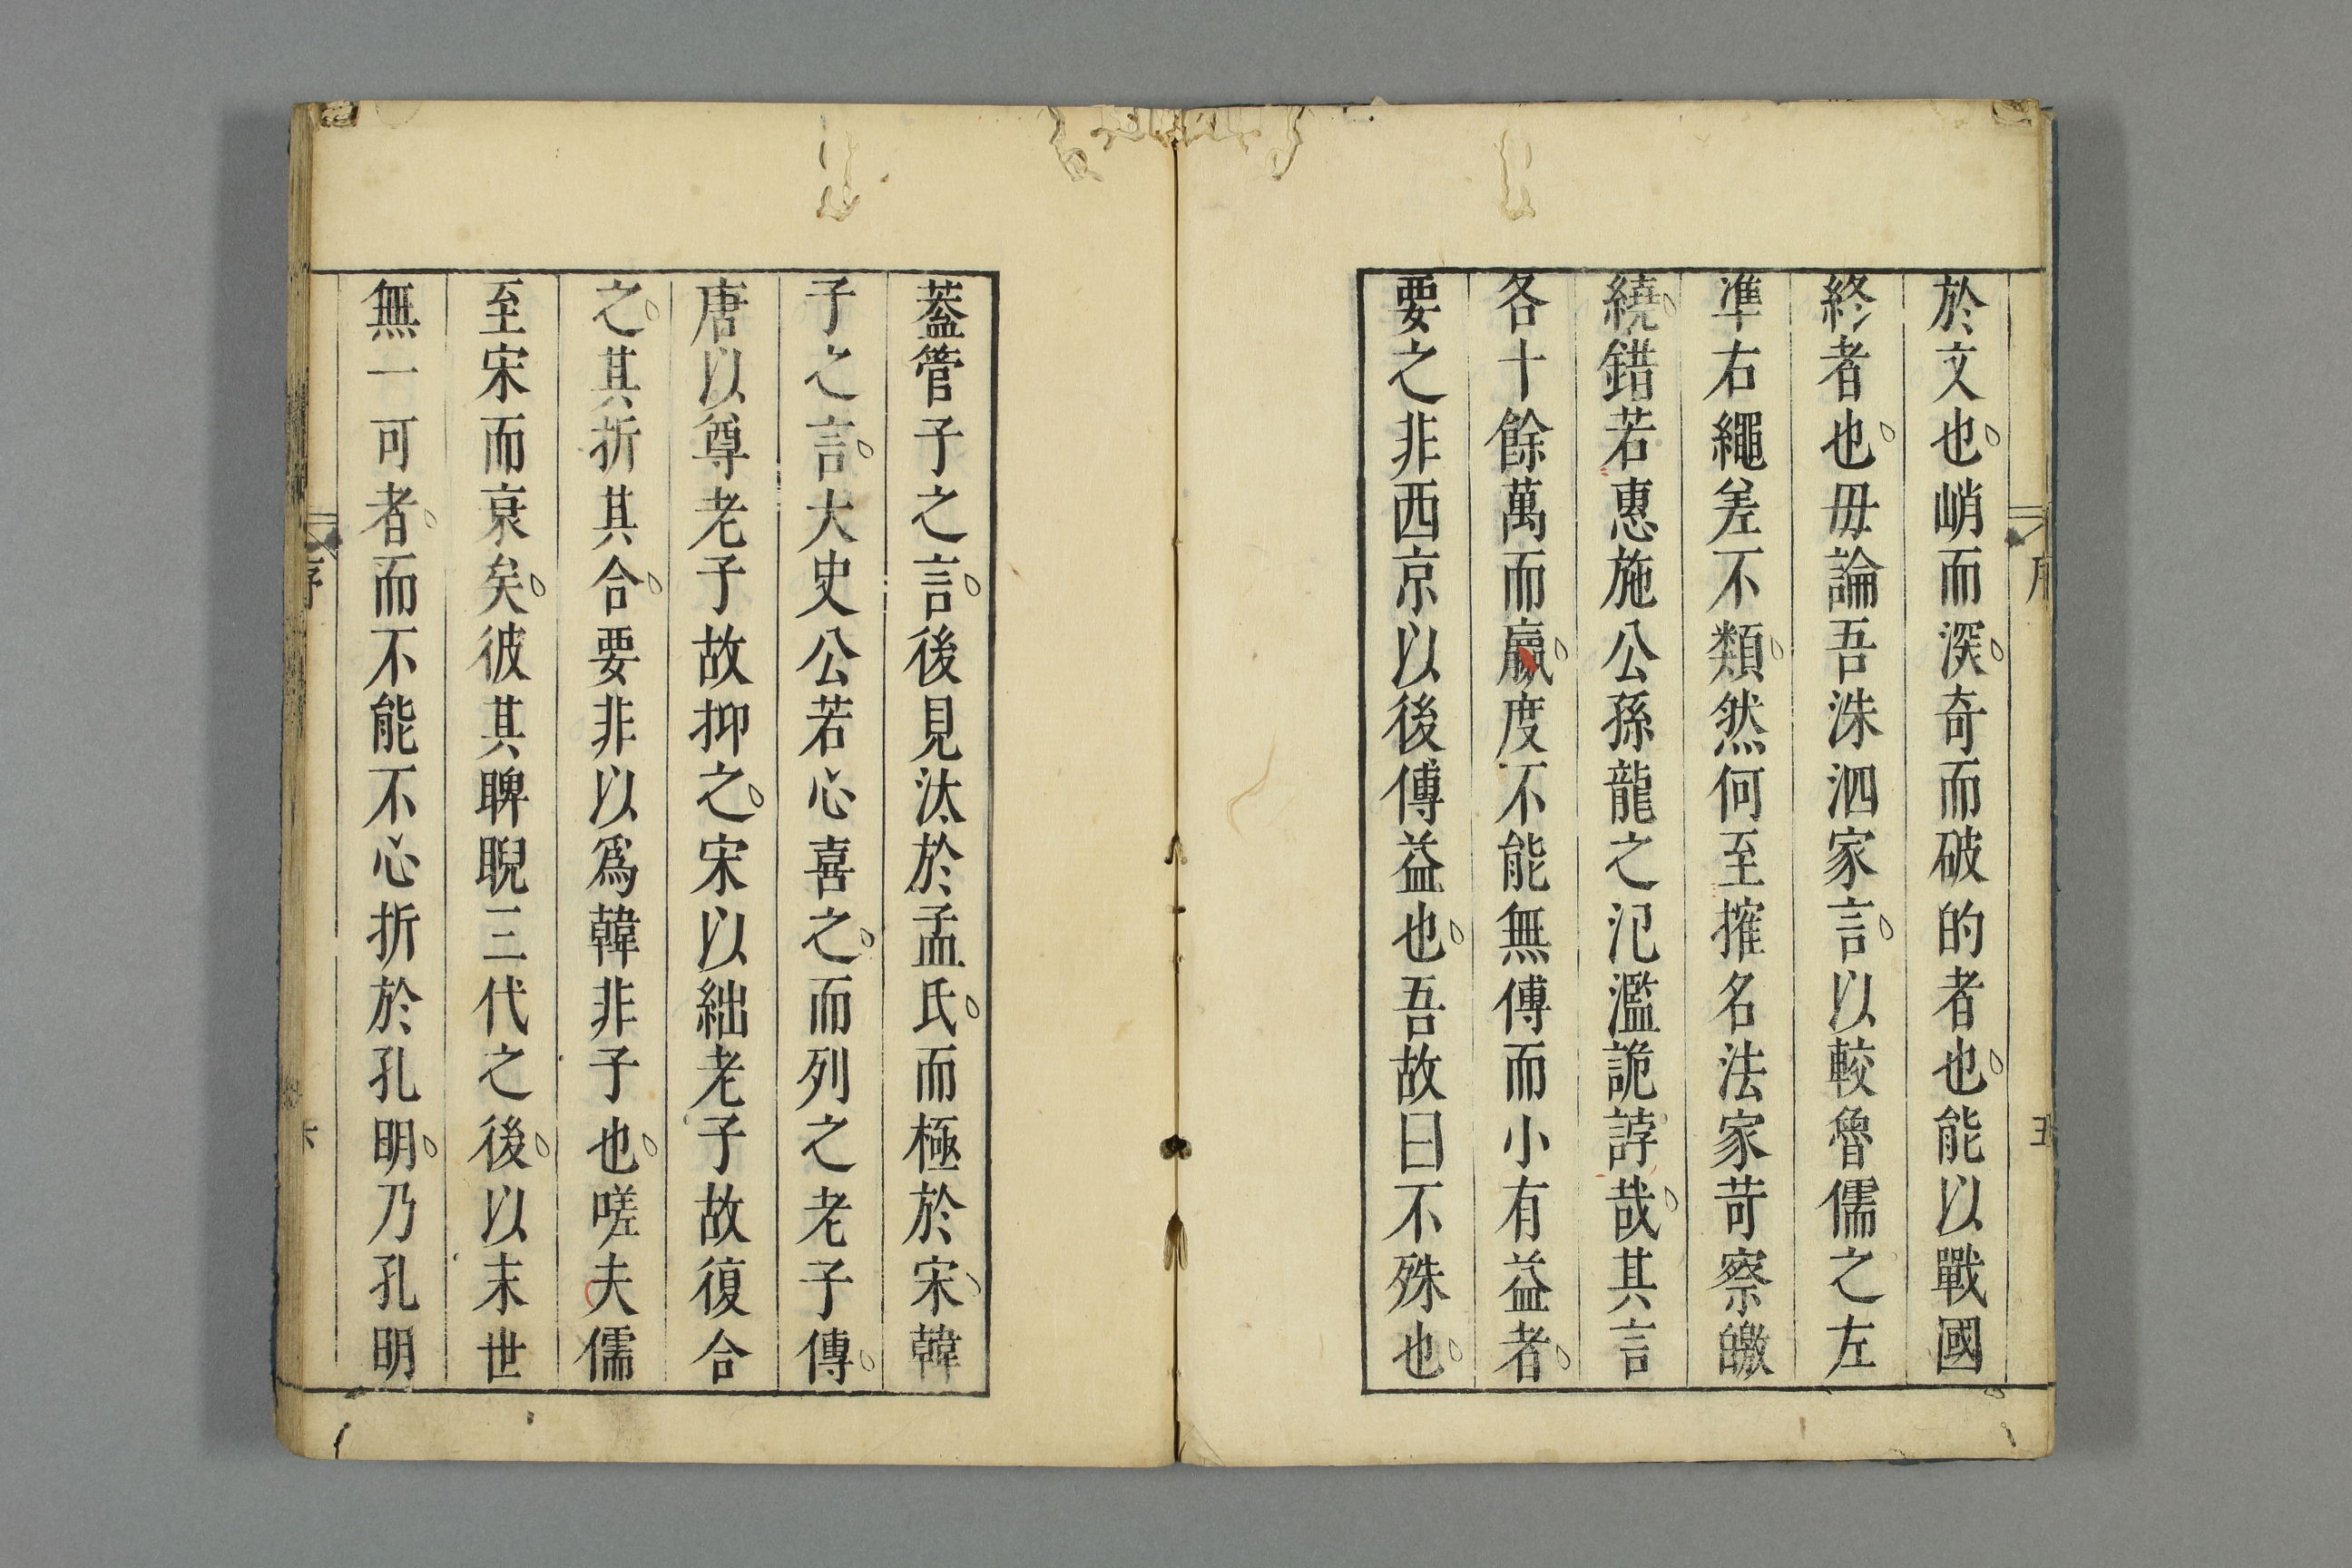 於文也峭而深奇而破的者也能以戰國
終者也毋論吾洙泗家言以較魯儒之左
準右繩差不類然何至摧名法家苛察皦
繞錯若惠施公孫龍之氾濫詭誖哉其言
各十餘萬而羸度不能無傅而小有益者
要之非西京以後傅益也吾故曰不殊也
蓋管子之言後見汰於孟氏而極於宋韓
子之言大史公若心喜之而列之老子傳
唐以尊老子故抑之宋以絀老子故復合
之其折其合要非以爲韓非子也嗟夫儒
至宋而衰矣彼其睥睨三代之後以末世
無一可者而不能不心折於孔明乃孔明
序